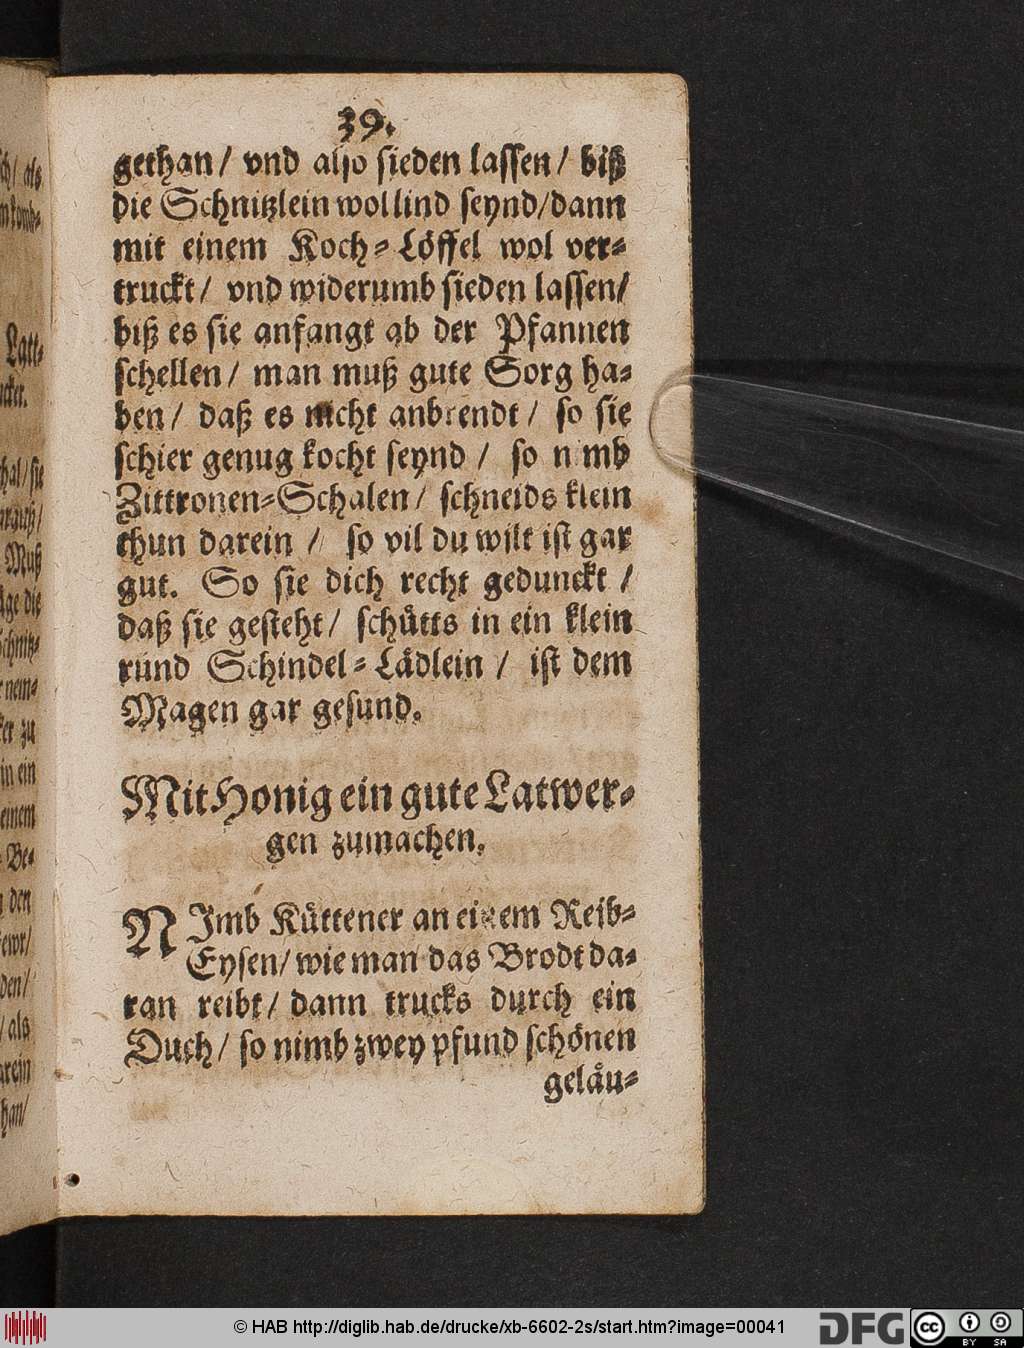 39.
gethan / vnd also sieden lassen / biß
die Schnitzlein wol lind seynd / dann
mit einem Koch-Löffel wol ver-
truckt / vnd widerumb sieden lassen /
biß es sie anfangt ab der Pfannen
schellen / man muß gute Sorg ha-
ben / daß es nicht anbrendt / so sie
schier genug kocht seynd / so nimb
Zittronen-Schalen / schneids klein
thun darein / so vil du wilt ist gar
gut. So sie dich recht gedunckt /
daß sie gesteht / schütts in ein klein
rund Schindel-Lädlein / ist dem
Magen gar gesund.
Mit Honig ein gute Latwer-
gen zumachen.
NImb Küttener an einem Reib-
Eysen / wie man das Brodt da-
ran reibt / dann trucks durch ein
Duch / so nimb zwey pfund schönen
geläu-
© HAB http://diglib.hab.de/drucke/xb-6602-2s/start.htm?image=00041
DFG
cc BY SA